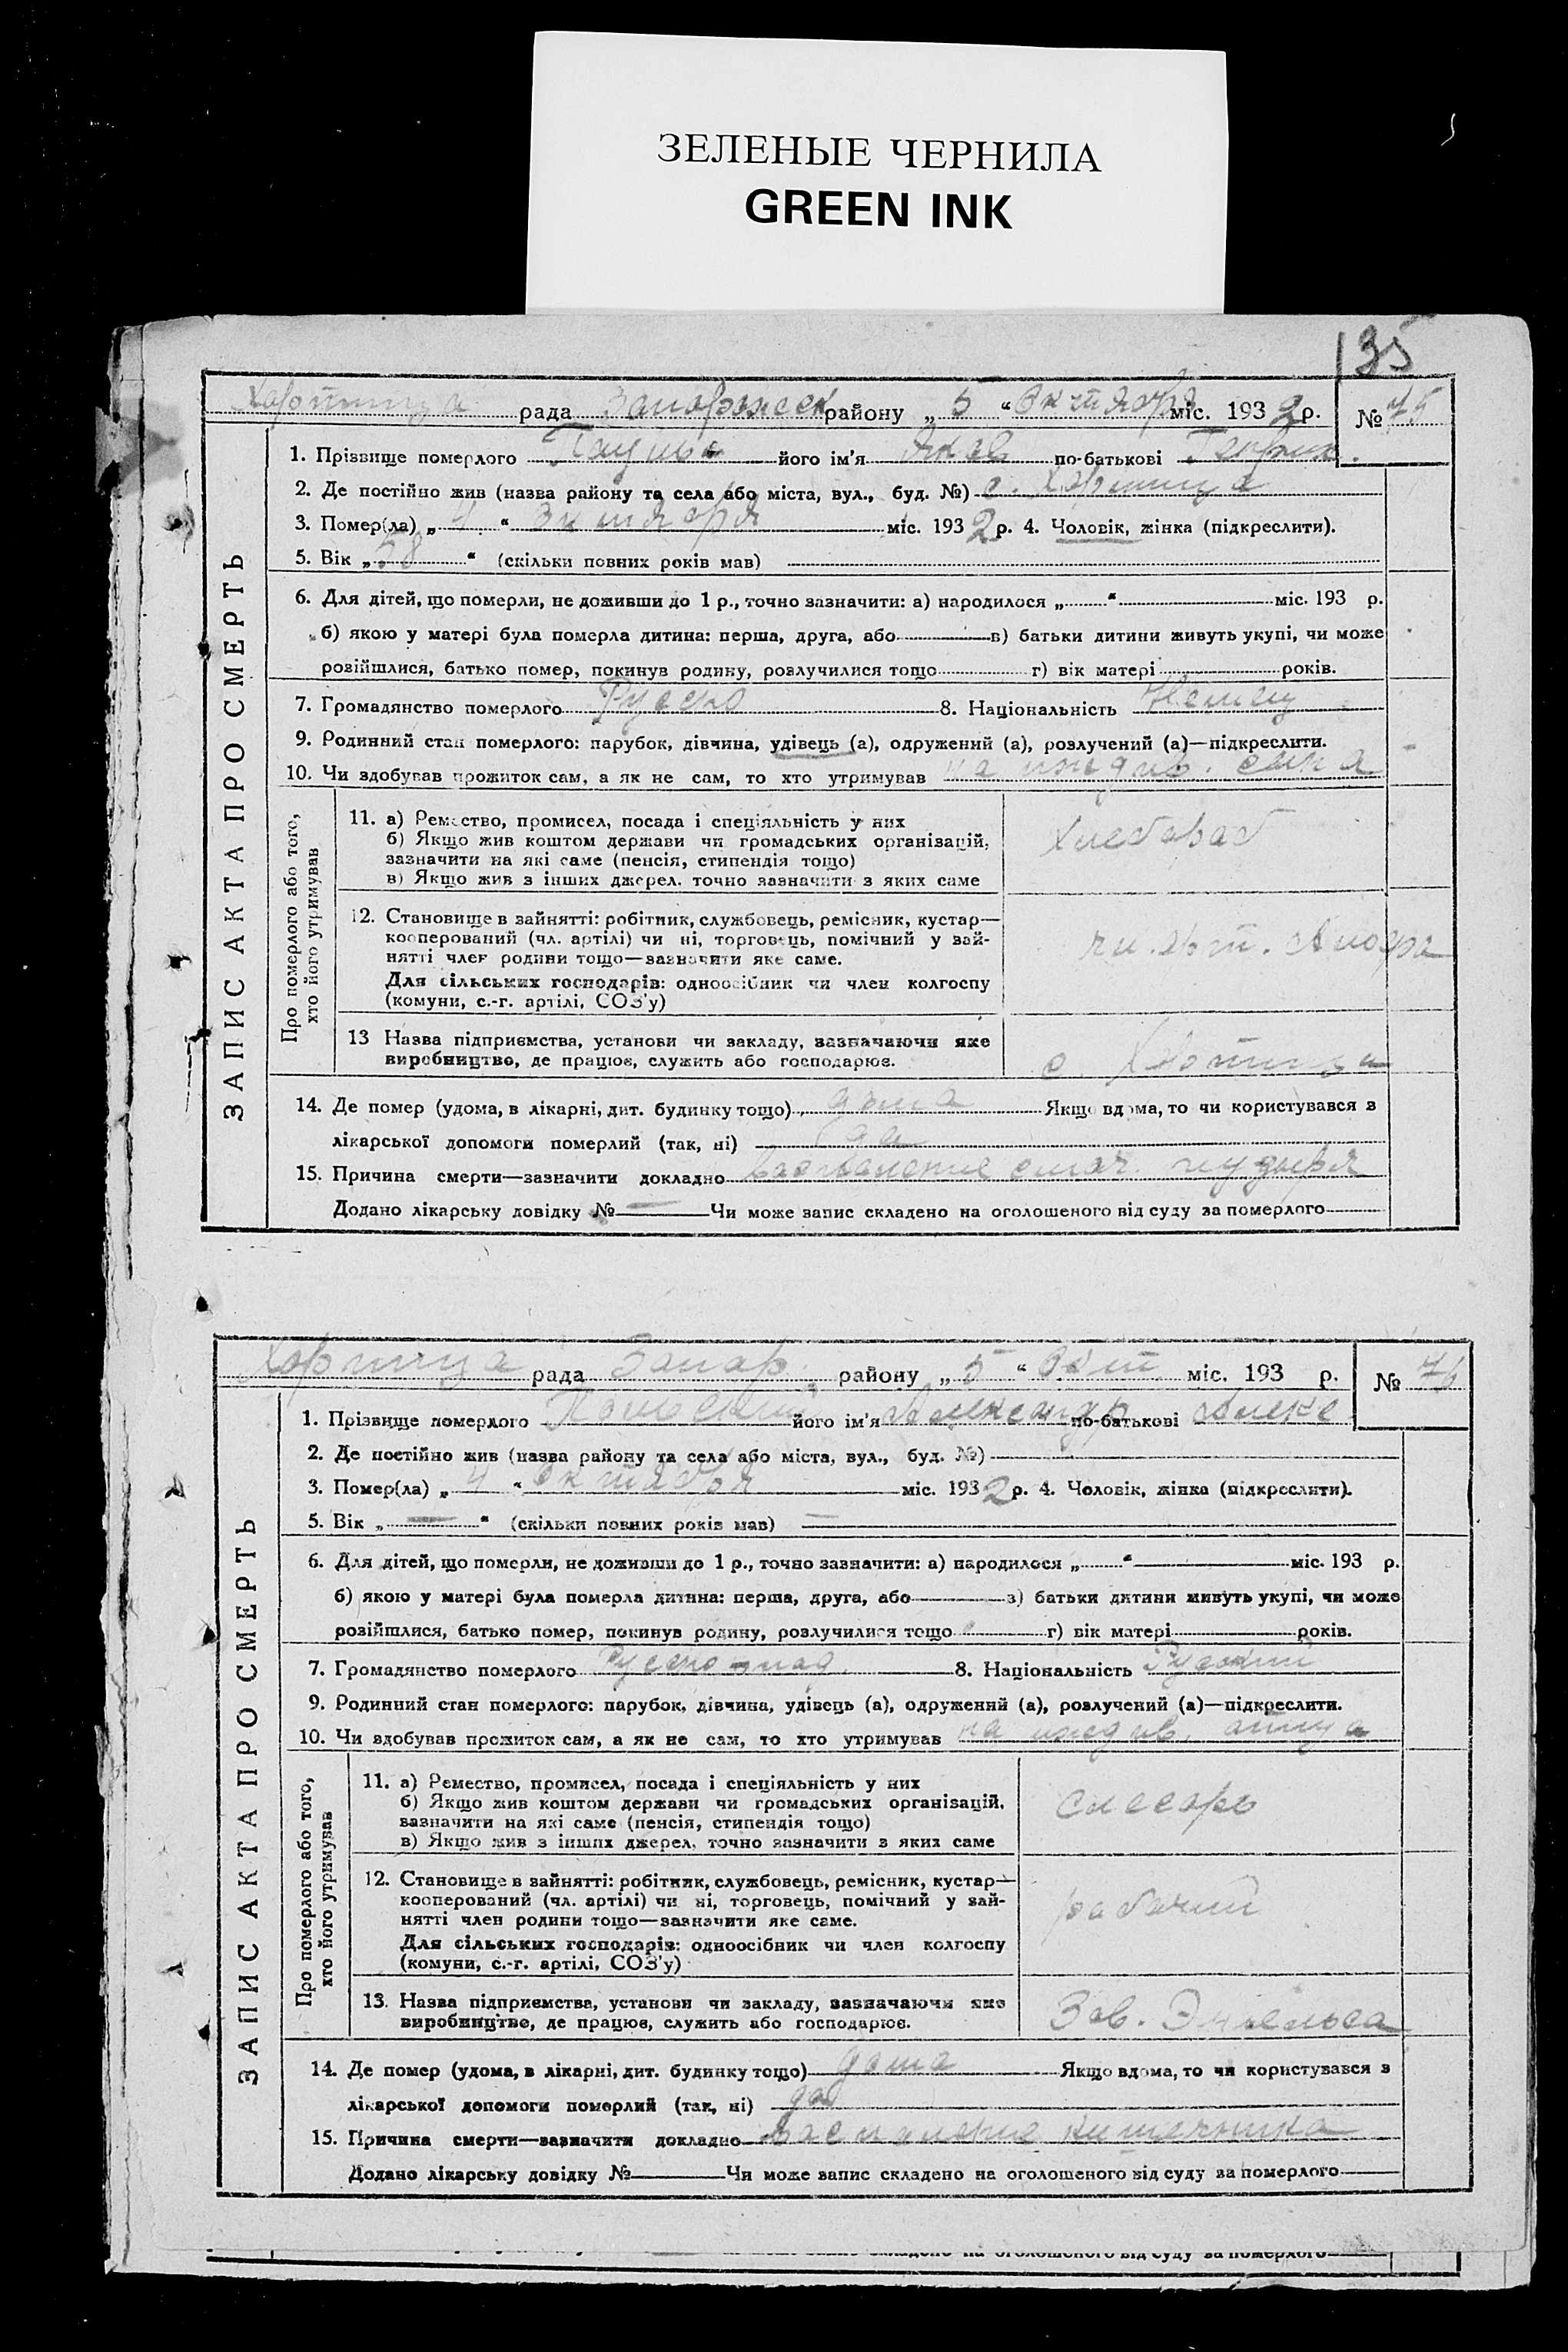 ЗЕЛЕНЫЕ ЧЕРНИЛА
GREEN INK
135
Хортица рада Запорожск району „ 5 “ Октября міс. 1932 р. № 75
ЗАПИС АКТА ПРО СМЕРТЬ
1. Прізвище померлого його ім'я Яков по-батькові
2. Де постійно жив (назва району та села або міста, вул., буд. №) с. Хортица
3. Помер(ла) „ 4 “ Октября міс. 1932 р. 4. Чоловік, жінка (підкреслити).
5. Вік „ 58 “ (скільки повних років мав)
6. Для дітей, що померли, не доживши до 1 р., точно зазначити: а) народилося „ “ міс. 193 р.
б) якою у матері була померла дитина: перша, друга, або в) батьки дитини живуть укупі, чи може
розійшлися, батько помер, покинув родину, розлучилися тощо г) вік матері років.
7. Громадянство померлого Руско 8. Національність Немец
9. Родинний стан померлого: парубок, дівчина, удівець (а), одружений (а), розлучений (а)—підкреслити.
10. Чи здобував прожиток сам, а як не сам, то хто утримував на иждив. сына
Про померлого або того,
хто його утримував
11. а) Ремество, промисел, посада і спеціяльність у них
б) Якщо жив коштом держави чи громадських організацій,
зазначити на які саме (пенсія, стипендія тощо)
в) Якщо жив з інших джерел, точно зазначити з яких саме
Хлебораб
12. Становище в зайнятті: робітник, службовець, ремісник, кустар—
кооперований (чл. артілі) чи ні, торговець, помічний у зай-
нятті член родини тощо—зазначити яке саме.
Для сільських господарів: одноосібник чи член колгоспу
(комуни, с.-г. артілі, СОЗ'у)
чл. арт.
13 Назва підприємства, установи чи закладу, зазначаючи яке
виробництво, де працює, служить або господарює.
с. Хортица
14. Де помер (удома, в лікарні, дит. будинку тощо) дома Якщо вдома, то чи користувався з
лікарської допомоги померлий (так, ні) да
15. Причина смерти—зазначити докладно воспаление пузыря
Додано лікарську довідку № — Чи може запис складено на оголошеного від суду за померлого
Хортица рада Запор. району „ 5 “ Окт міс. 193 р. № 76
ЗАПИС АКТА ПРО СМЕРТЬ
1. Прізвище померлого його ім'я Александр по-батькові Алекс
2. Де постійно жив (назва району та села або міста, вул., буд. №)
3. Помер(ла) „ 4 “ Октября міс. 1932 р. 4. Чоловік, жінка (підкреслити).
5. Вік „ — “ (скільки повних років мав) —
6. Для дітей, що померли, не доживши до 1 р., точно зазначити: а) народилося „ “ міс. 193 р.
б) якою у матері була померла дитина: перша, друга, або в) батьки дитини живуть укупі, чи може
розійшлися, батько помер, покинув родину, розлучилися тощо г) вік матері років.
7. Громадянство померлого Руско-под. 8. Національність Руский
9. Родинний стан померлого: парубок, дівчина, удівець (а), одружений (а), розлучений (а)—підкреслити.
10. Чи здобував прожиток сам, а як не сам, то хто утримував на иждив. отца
Про померлого або того,
хто його утримував
11. а) Ремество, промисел, посада і спеціяльність у них
б) Якщо жив коштом держави чи громадських організацій,
зазначити на які саме (пенсія, стипендія тощо)
в) Якщо жив з інших джерел, точно зазначити з яких саме
Слесарь
12. Становище в зайнятті: робітник, службовець, ремісник, кустар—
кооперований (чл. артілі) чи ні, торговець, помічний у зай-
нятті член родини тощо—зазначити яке саме.
Для сільських господарів: одноосібник чи член колгоспу
(комуни, с.-г. артілі, СОЗ'у)
рабочий
13. Назва підприємства, установи чи закладу, зазначаючи яке
виробництво, де працює, служить або господарює.
Зав. Энгельса
14. Де помер (удома, в лікарні, дит. будинку тощо) дома Якщо вдома, то чи користувався з
лікарської допомоги померлий (так, ні) да
15. Причина смерти—зазначити докладно Воспаление кишечника
Додано лікарську довідку № Чи може запис складено на оголошеного від суду за померлого
складено на оголошеного від суду за померлого